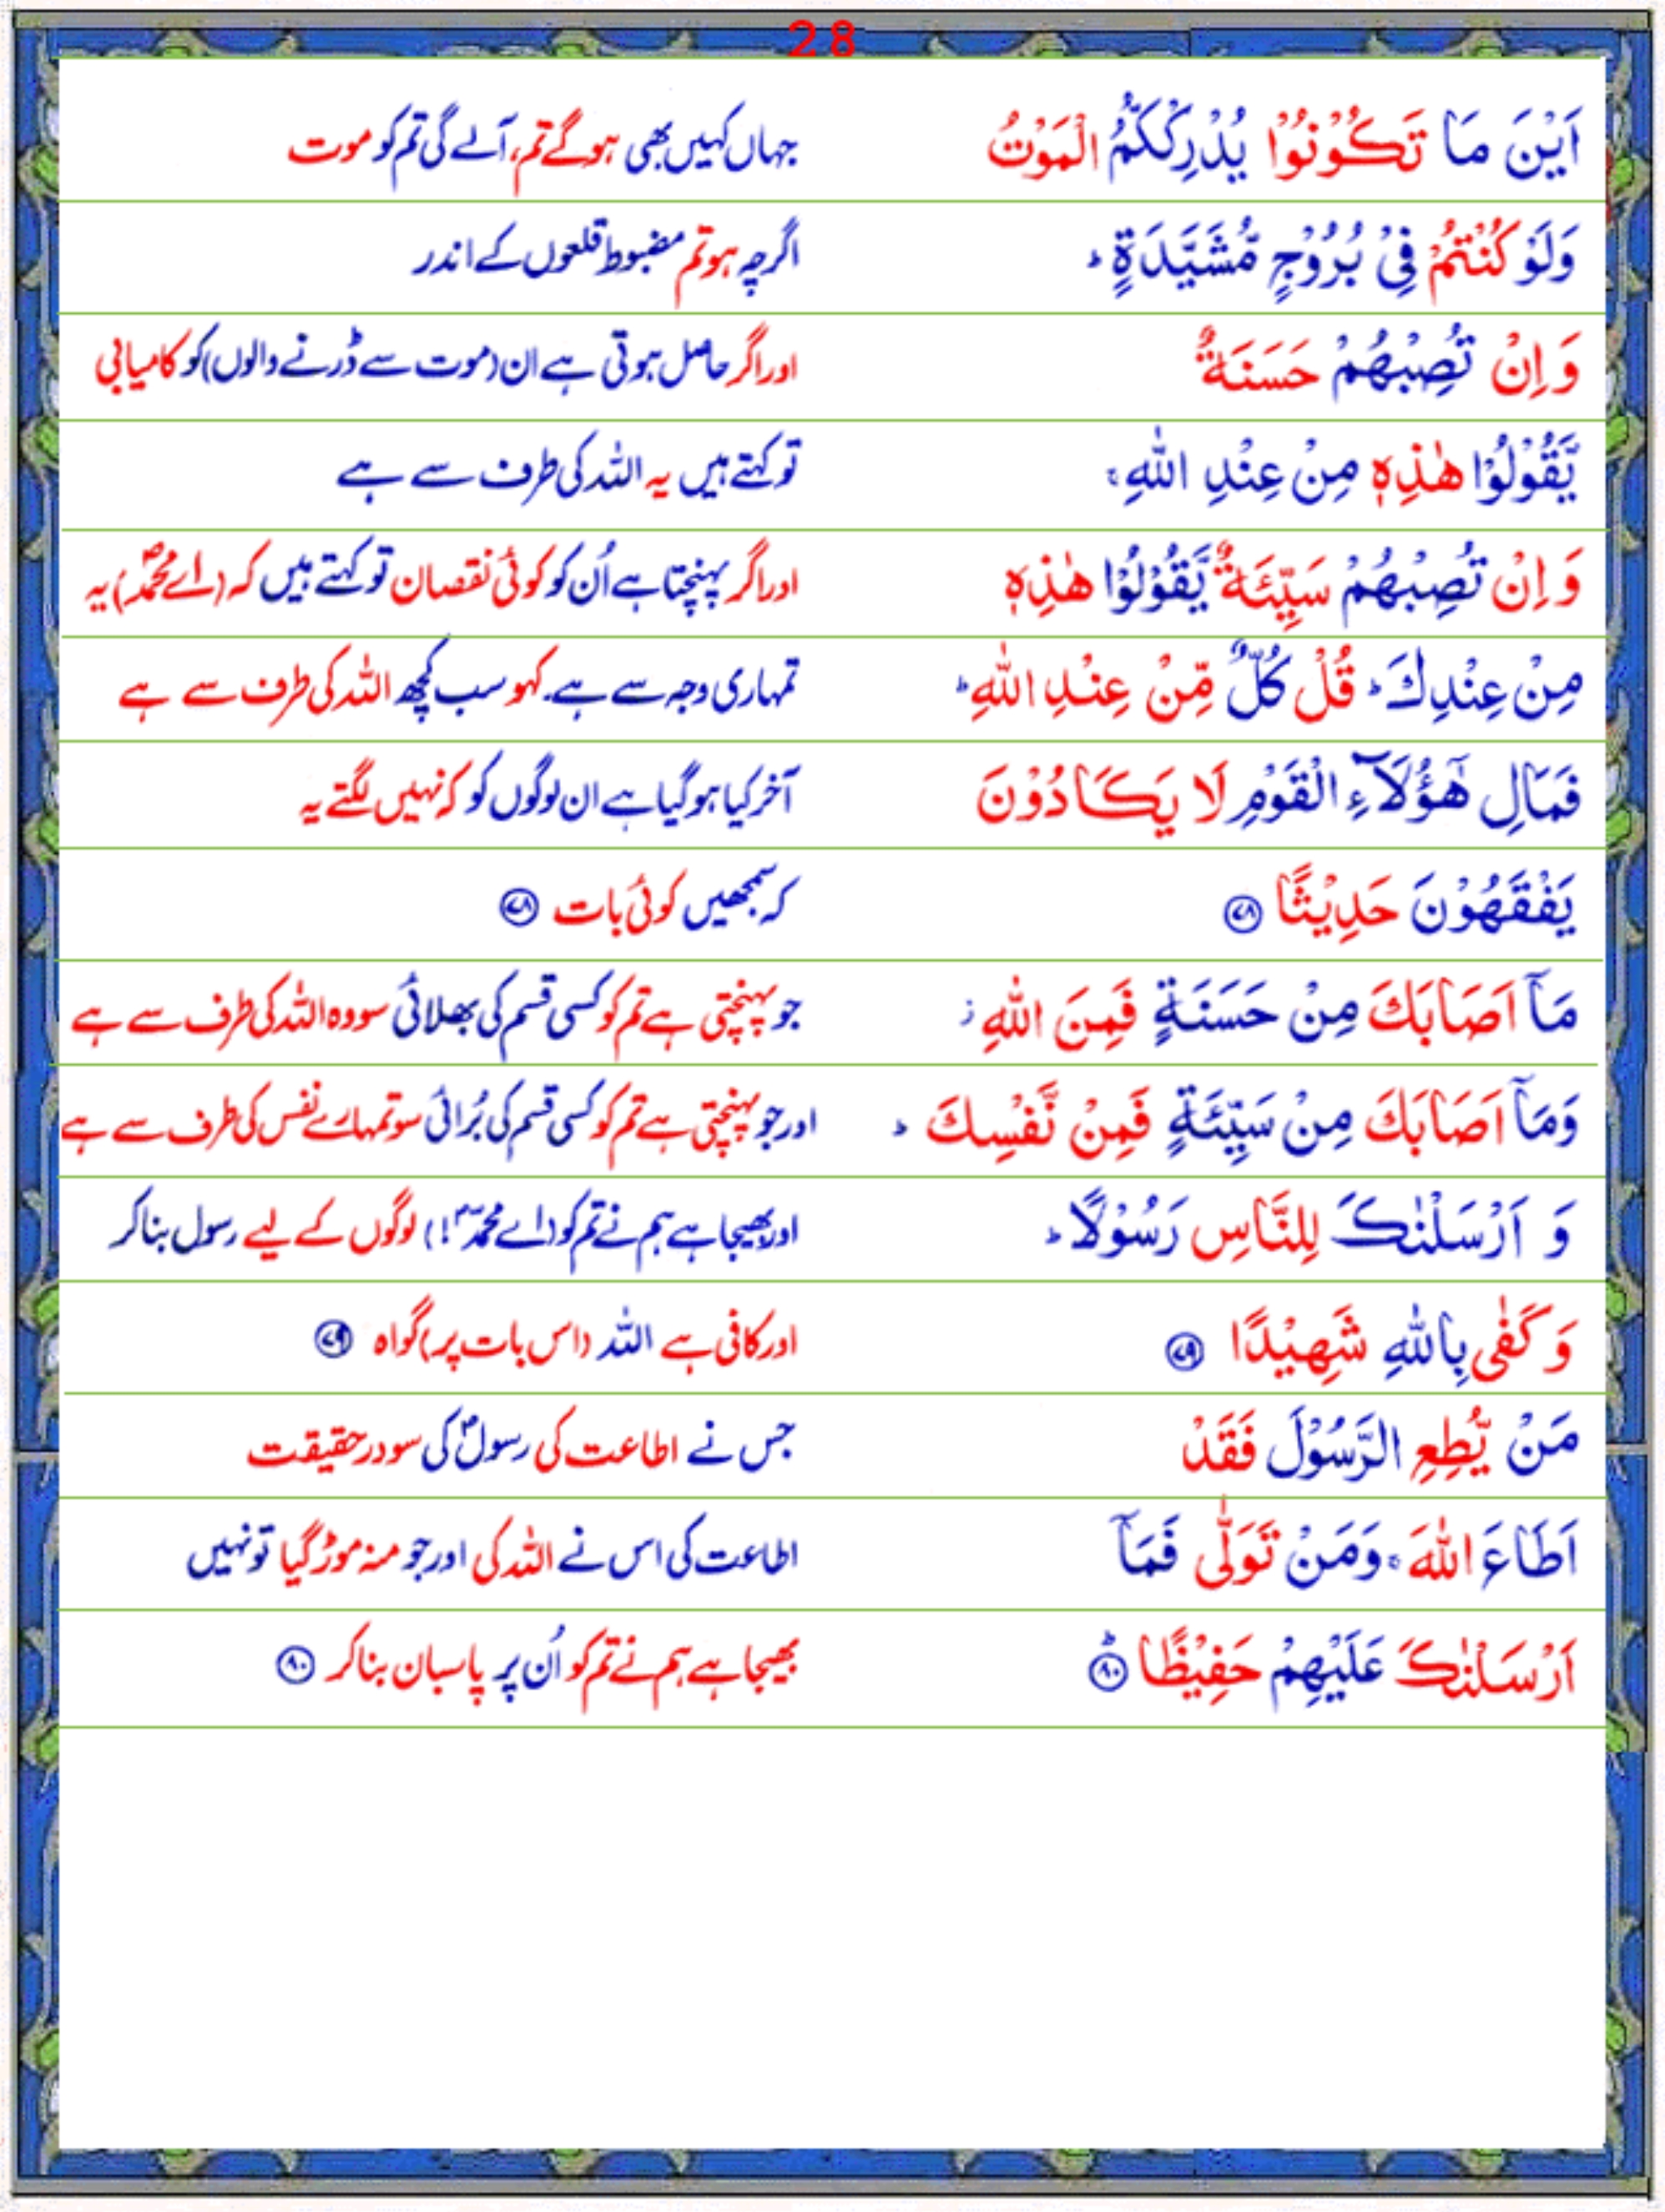 28
اَیْنَ مَا تَكُوْنُوْا یُدْرِكْكُّمُ الْمَوْتُ جہاں کہیں بھی ہو گے تم، آلے گی تم کو موت
وَلَوْ كُنْتُمْ فِیْ بُرُوْجٍ مُّشَیَّدَةٍ ؕ اگرچہ ہو تم مضبوط قلعوں کے اندر
وَ اِنْ تُصِبْهُمْ حَسَنَةٌ اور اگر حاصل ہوتی ہے ان (موت سے ڈرنے والوں) کو کامیابی
یَّقُوْلُوْا هٰذِهٖ مِنْ عِنْدِ اللّٰهِ ۚ تو کہتے ہیں یہ اللہ کی طرف سے ہے
وَ اِنْ تُصِبْهُمْ سَیِّئَةٌ یَّقُوْلُوْا هٰذِهٖ اور اگر پہنچتا ہے اُن کو کوئی نقصان تو کہتے ہیں کہ (اے محمدؐ) یہ
مِنْ عِنْدِكَ ؕ قُلْ كُلٌّ مِّنْ عِنْدِ اللّٰهِ ؕ تمہاری وجہ سے ہے۔ کہو سب کچھ اللہ کی طرف سے ہے
فَمَالِ هٰۤؤُلَآءِ الْقَوْمِ لَا یَكَادُوْنَ آخر کیا ہو گیا ہے ان لوگوں کو کہ نہیں لگتے یہ
یَفْقَهُوْنَ حَدِیْثًا ۷۸ کہ سمجھیں کوئی بات ۷۸
مَاۤ اَصَابَكَ مِنْ حَسَنَةٍ فَمِنَ اللّٰهِ ؗ جو پہنچتی ہے تم کو کسی قسم کی بھلائی سو وہ اللہ کی طرف سے ہے
وَمَاۤ اَصَابَكَ مِنْ سَیِّئَةٍ فَمِنْ نَّفْسِكَ ؕ اور جو پہنچتی ہے تم کو کسی قسم کی بُرائی سو تمہارے نفس کی طرف سے ہے
وَ اَرْسَلْنٰكَ لِلنَّاسِ رَسُوْلًا ؕ اور بھیجا ہے ہم نے تم کو (اے محمدؐ!) لوگوں کے لیے رسول بنا کر
وَ كَفٰی بِاللّٰهِ شَهِیْدًا ۷۹ اور کافی ہے اللہ (اس بات پر) گواہ ۷۹
مَنْ یُّطِعِ الرَّسُوْلَ فَقَدْ جس نے اطاعت کی رسولؐ کی سو درحقیقت
اَطَاعَ اللّٰهَ ۚ وَمَنْ تَوَلّٰی فَمَاۤ اطاعت کی اس نے اللہ کی اور جو منہ موڑ گیا تو نہیں
اَرْسَلْنٰكَ عَلَیْهِمْ حَفِیْظًا ؕ۸۰ بھیجا ہے ہم نے تم کو اُن پر پاسبان بنا کر ۸۰